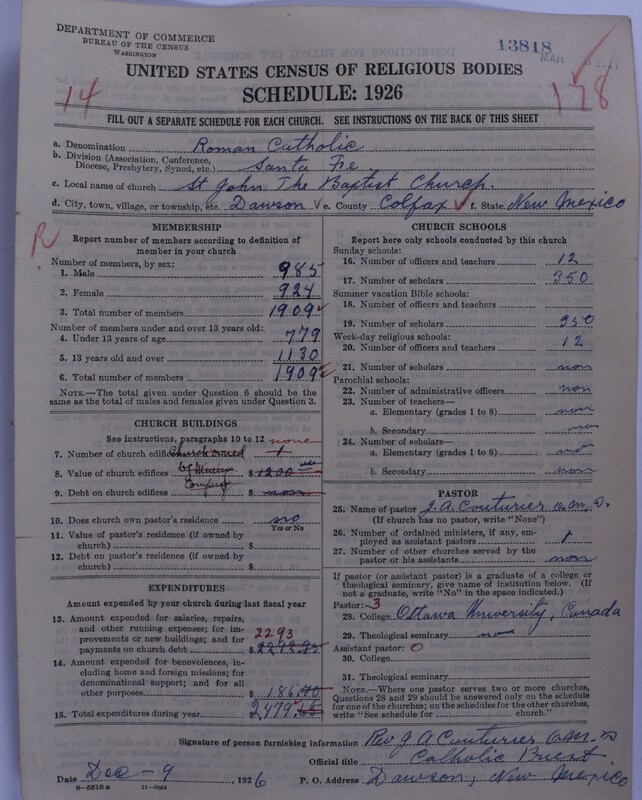 DEPARTMENT OF COMMERCE
BUREAU OF THE CENSUS
WASHINGTON
13818
MAR
UNITED STATES CENSUS OF RELIGIOUS BODIES
SCHEDULE: 1926
14
178
FILL OUT A SEPARATE SCHEDULE FOR EACH CHURCH. SEE INSTRUCTIONS ON THE BACK OF THIS SHEET
a. Denomination Roman Catholic
b. Division (Association, Conference, Diocese, Presbytery, Synod, etc.) Santa Fe
c. Local name of church St John The Baptist Church.
d. City, town, village, or township, etc. Dawson e. County Colfax f. State New Mexico
R
MEMBERSHIP
Report number of members according to definition of
member in your church
Number of members, by sex:
1. Male 985
2. Female 924
3. Total number of members 1909
Number of members under and over 13 years old:
4. Under 13 years of age 779
5. 13 years old and over 1130
6. Total number of members 1909
NOTE.—The total given under Question 6 should be
same as the total of males and females given under Question 3.
CHURCH BUILDINGS
See instructions, paragraphs 10 to 12 none
7. Number of church edifices Church owned 1
8. Value of church edifices by $ 1200
9. Debt on church edifices $ non
10. Does church own pastor's residence no
Yes or No
11. Value of pastor's residence (if owned by
church) $
12. Debt on pastor's residence (if owned by
church) $
EXPENDITURES
Amount expended by your church during last fiscal year
13. Amount expended for salaries, repairs,
and other running expenses; for im-
provements or new buildings; and for 2293
payments on church debt $
14. Amount expended for benevolences, in-
cluding home and foreign missions; for
denominational support; and for all
other purposes $ 186.40
15. Total expenditures during year $ 2479
CHURCH SCHOOLS
Report here only schools conducted by this church
Sunday schools:
16. Number of officers and teachers 12
17. Number of scholars 350
Summer vacation Bible schools:
18. Number of officers and teachers
19. Number of scholars 350
Week-day religious schools:
20. Number of officers and teachers 12
21. Number of scholars non
Parochial schools:
22. Number of administrative officers non
23. Number of teachers—
a. Elementary (grades 1 to 8) non
b. Secondary non
24. Number of scholars—
a. Elementary (grades 1 to 8)
b. Secondary non
PASTOR
25. Name of pastor J. A. Couturier o.m.I.
(If church has no pastor, write "None")
26. Number of ordained ministers, if any, em-
ployed as assistant pastors 1
27. Number of other churches served by the
pastor or his assistants non
If pastor (or assistant pastor) is a graduate of a college or
theological seminary, give name of institution below. (If
not a graduate, write "No" in the space indicated.)
Pastor: 3
28. College Ottawa University, Canada
29. Theological seminary non
Assistant pastor: 0
30. College
31. Theological seminary
NOTE.—Where one pastor serves two or more churches,
Questions 28 and 29 should be answered only on the schedule
for one of the churches; on the schedules for the other churches,
write "See schedule for church."
Signature of person furnishing information Rev J A Couturier
Official title Catholic Priest
Date Dec - 9, 1926 P. O. Address Dawson, New Mexico
8-5318a 11-9864